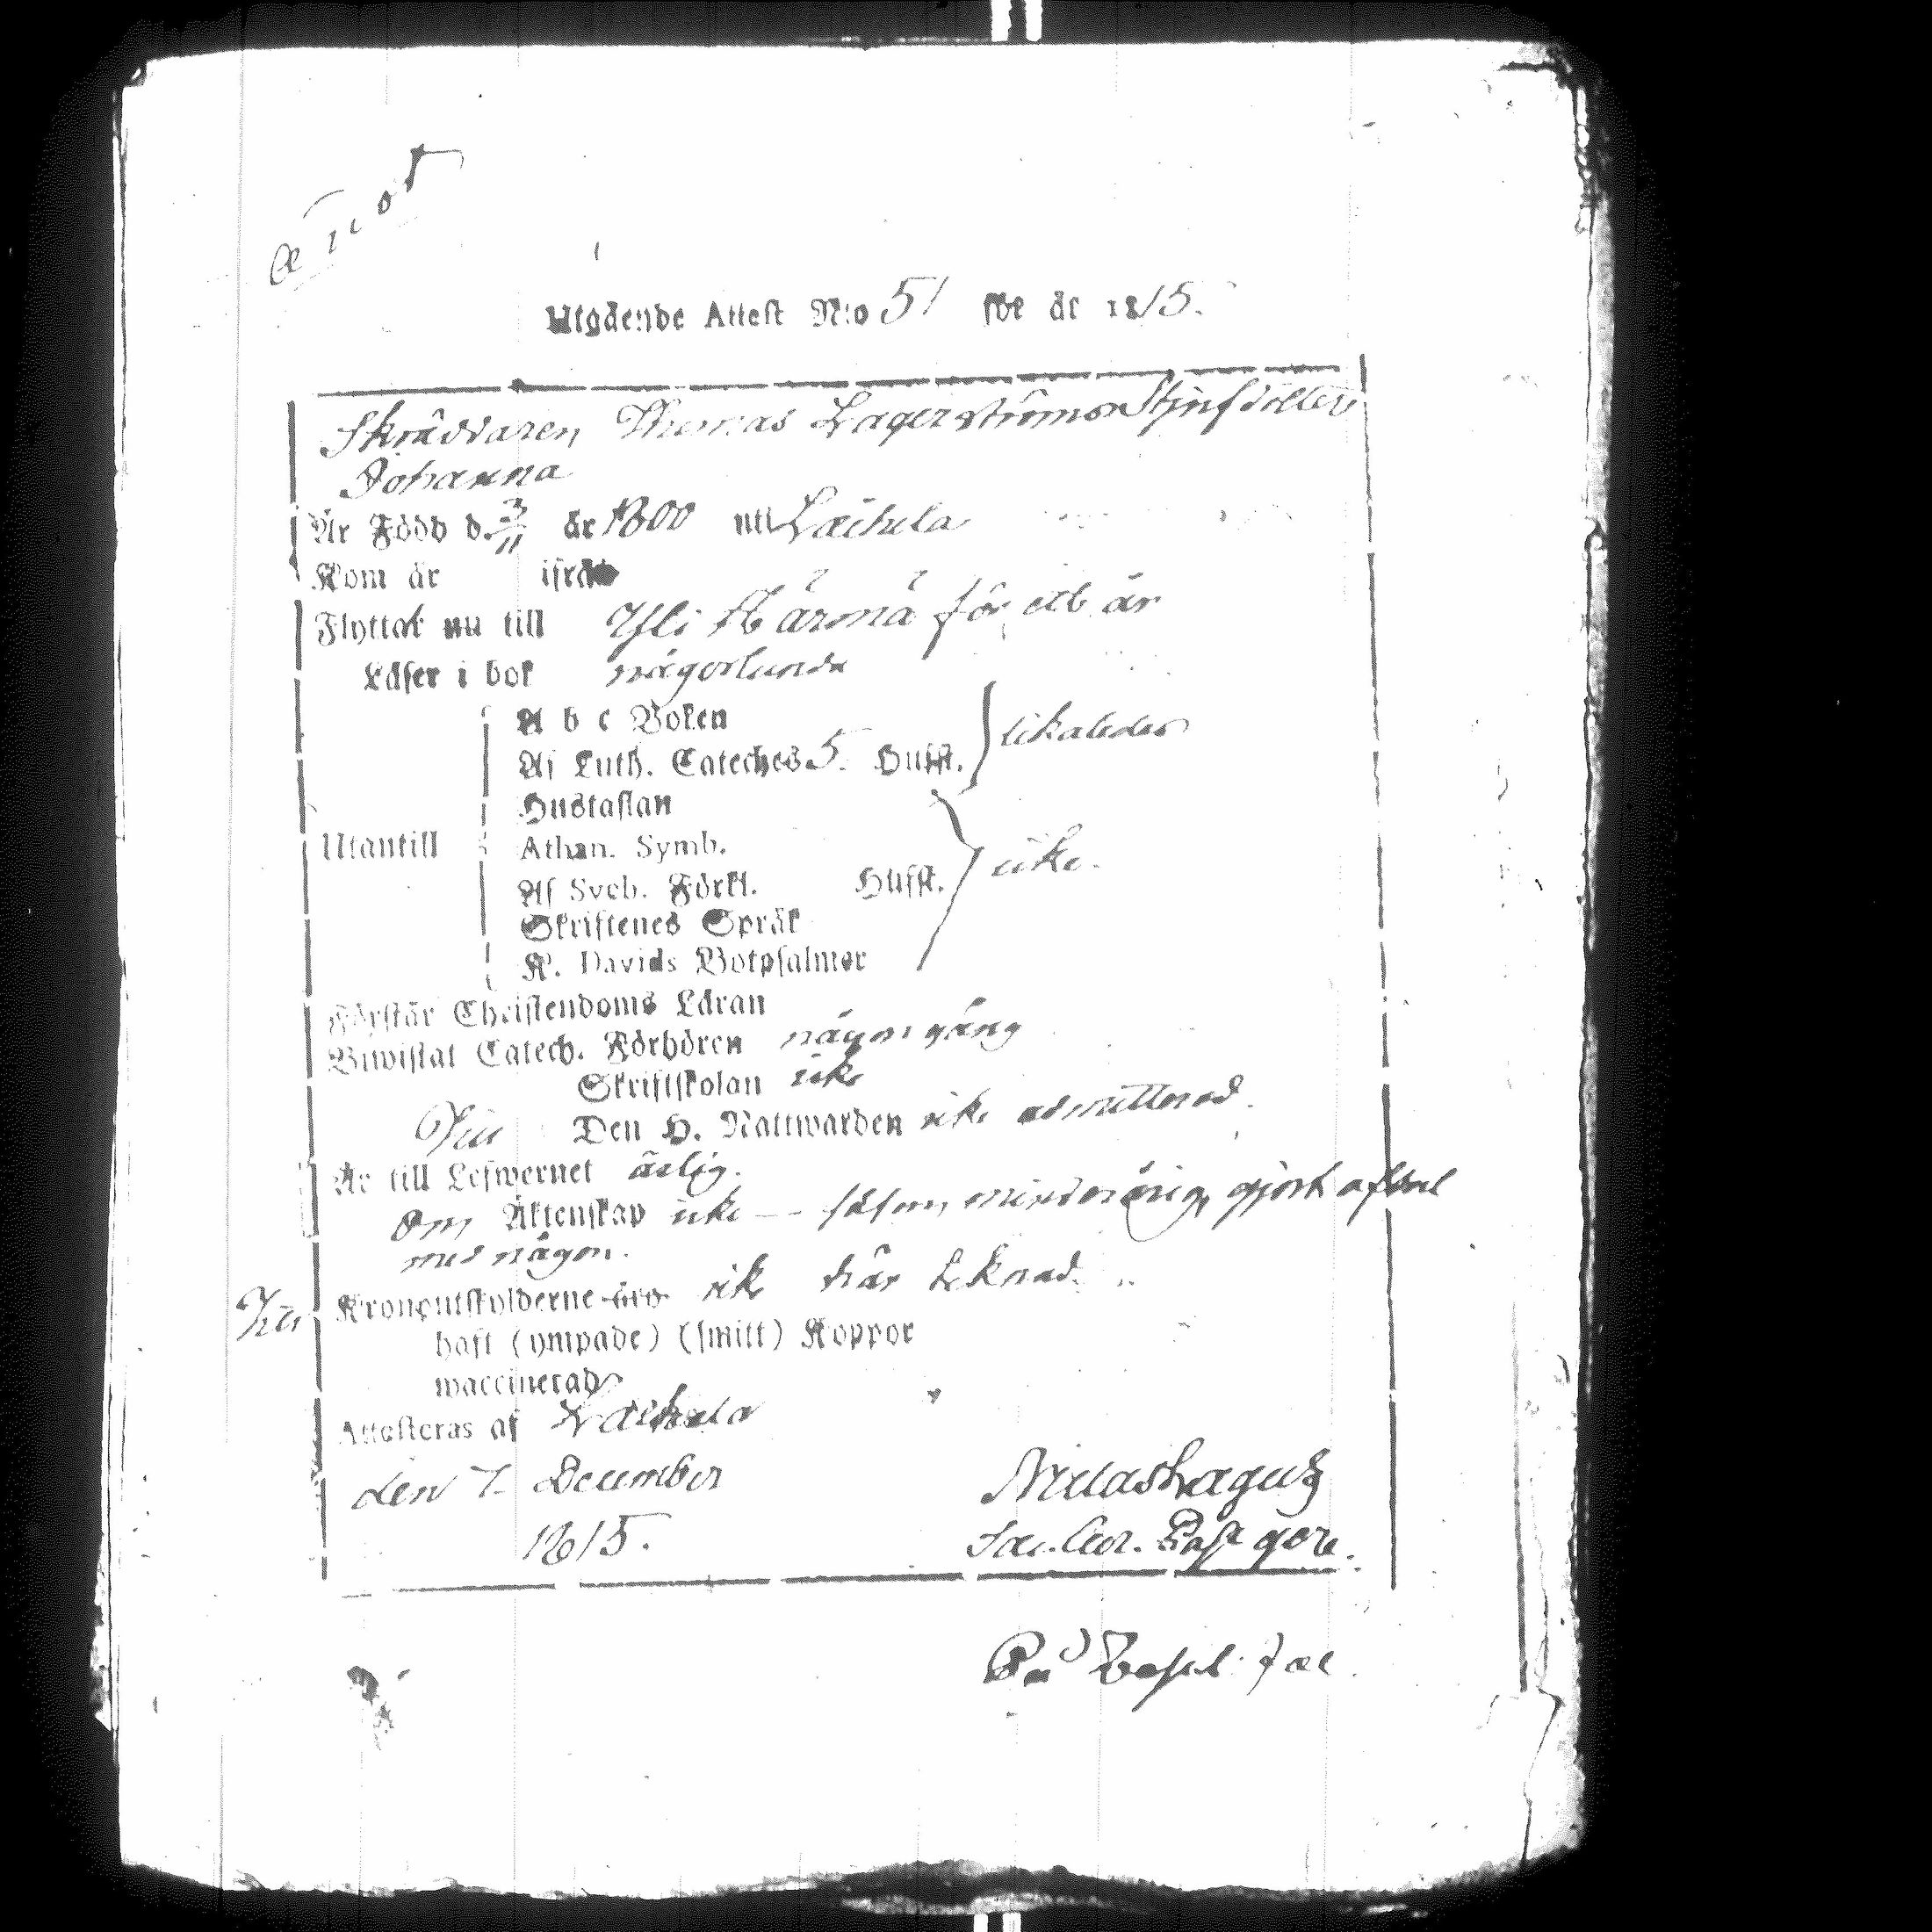 Utgående Attest N:o 51 för år 1815.
Skräddaren Thomas Lagerströms Stjufdotter
Johanna
Är Född d. 3/11 år 1800 uti Laihela
Kom år ifrån
Flyttar nu till Ylihärmä för ett år
Läser i bok någorlunda
A b c Boken
Af Luth. Cateches 5. Hufst. likaledes
Hustaflan
Utantill Athan. Symb.
Af Sveb. Förkl. Hufst. icke.
Skriftenes Språk
K. Davids Botpsalmer
Förstår Christendoms Läran
Biwistat Catech. Förhören någon gång
Skriftskolan icke
Den H. Nattwarden icke admitterad.
Är till Lefwernet ärlig.
Om Äktenskap icke — såsom minderårig, gjort aftal
med någon.
Kronoutskylderne äro icke här teknad.
haft (ympade) (smitt) Koppor
waccinerad
Attesteras af Laihela
den 7 December
1815.
Past